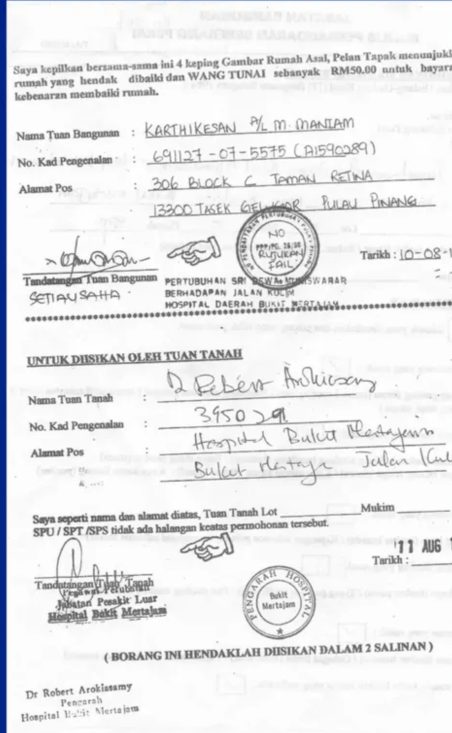 Saya kepilkan bersama-sama ini 4 keping Gambar Rumah Asal, Pelan Tapak menunjuki
rumah yang hendak dibaiki dan WANG TUNAI sebanyak RM50.00 untuk bayara
kebenaran membaiki rumah.
Nama Tuan Bangunan : KARTHIKESAN A/L M. MANIAM
No. Kad Pengenalan : 691127-07-5575 (A1590289)
Alamat Pos : 306 BLOCK C TAMAN RETINA
13300 TASEK GELUGOR PULAU PINANG
NO
RUJUKAN
FAIL
Tarikh : 10-08-1
Tandatangan Tuan Bangunan
SETIAUSAHA
PERTUBUHAN SRI MUNISWARAR
BERHADAPAN JALAN KULIM
HOSPITAL DAERAH BUKIT MERTAJAM
UNTUK DIISIKAN OLEH TUAN TANAH
Nama Tuan Tanah :
No. Kad Pengenalan : 395029
Alamat Pos : Hospital Bukit Mertajam
Bukit Jalan Kul
Saya seperti nama dan alamat diatas, Tuan Tanah Lot Mukim
SPU / SPT /SPS tidak ada halangan keatas permohonan tersebut.
11 AUG 1
Tarikh :
Tandatangan Tuan Tanah
Pegawai Perubatan
Jabatan Pesakit Luar
Hospital Bukit Mertajam
PENGARAH HOSPITAL
Bukit
Mertajam
( BORANG INI HENDAKLAH DIISIKAN DALAM 2 SALINAN )
Dr Robert Arokiasamy
Pengarah
Hospital Bukit Mertajam